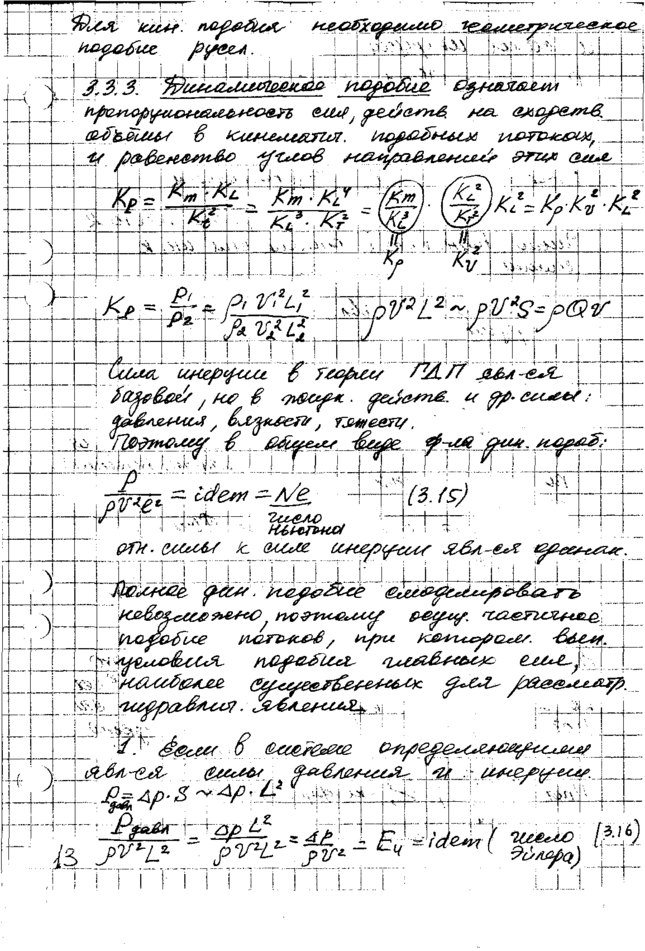 Для кин. подобия необходимо геометрическое
подобие русел.
3.3.3. Динамическое подобие означает
пропорциональность сил, действ. на сходств.
объёмы в кинематич. подобных потоках,
и равенство углов направлений этих сил
Kp = Km · KL / Kt² = Km · KL⁴ / KL³ · KT² = (Km / KL³) · (KL² / KT²) KL² = Kρ · Kυ² · KL²
Kρ Kυ²
Kp = P₁ / P₂ = ρ₁ V₁² L₁² / ρ₂ V₂² L₂² ρV² L² ~ ρV² S = ρQV
Сила инерции в теории ГДП явл-ся
базовой, но в жидк. действ. и др. силы:
давления, вязкости, тяжести.
Поэтому в общем виде ф-ла дин. подоб:
P / ρV²ℓ² = idem = Ne (3.15)
число
Ньютона
отн. силы к силе инерции явл-ся одинак.
Полное дин. подобие смоделировать
невозможно, поэтому осущ. частичное
подобие потоков, при котором вып.
условия подобия главных сил,
наиболее существенных для рассматр.
гидравлич. явления.
1. Если в системе определяющими
явл-ся силы давления и инерции.
Pдавл = Δp · S ~ Δp · L²
Pдавл / ρV² L² = Δp L² / ρV² L² = Δp / ρV² = Eu = idem (число Эйлера) (3.16)
13